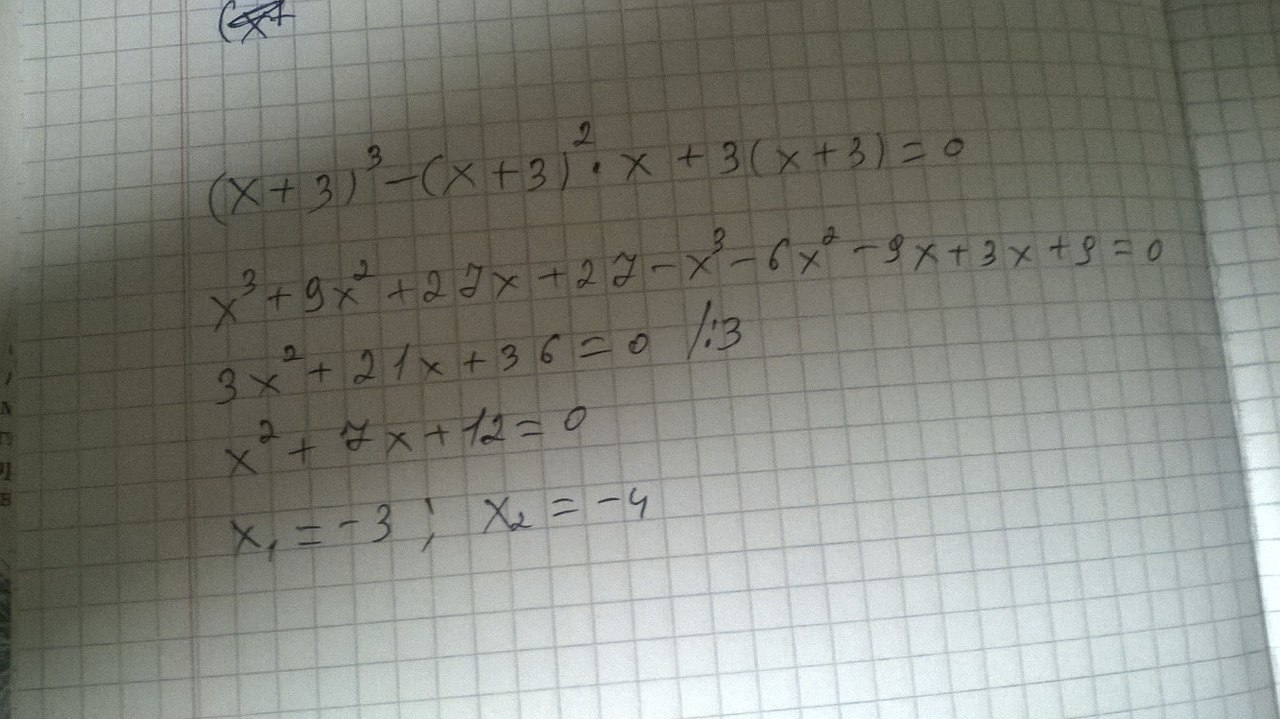 (x+
(x+3)³-(x+3)²·x+3(x+3)=0
x³+9x²+27x+27-x³-6x²-9x+3x+9=0
3x²+21x+36=0 /:3
x²+7x+12=0
x₁=-3; x₂=-4